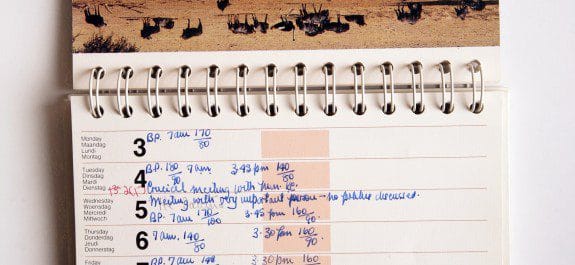 Monday
Maandag
Lundi
Montag
3
B.P. 7am 170/80
Tuesday
Dinsdag
Mardi
Dienstag
4
B.P. 180/90 7am 3.45 pm 140/80
Crucial meeting with
Wednesday
Woensdag
Mercredi
Mittwoch
5
Meeting with very important person → no politics discussed.
B.P. 7am 170/100 3.45 pm 160/90
Thursday
Donderdag
Jeudi
Donnerstag
6
7am. 140/80 3.30pm 160/90
Friday
7
B.P. 7am 3.30 pm 160